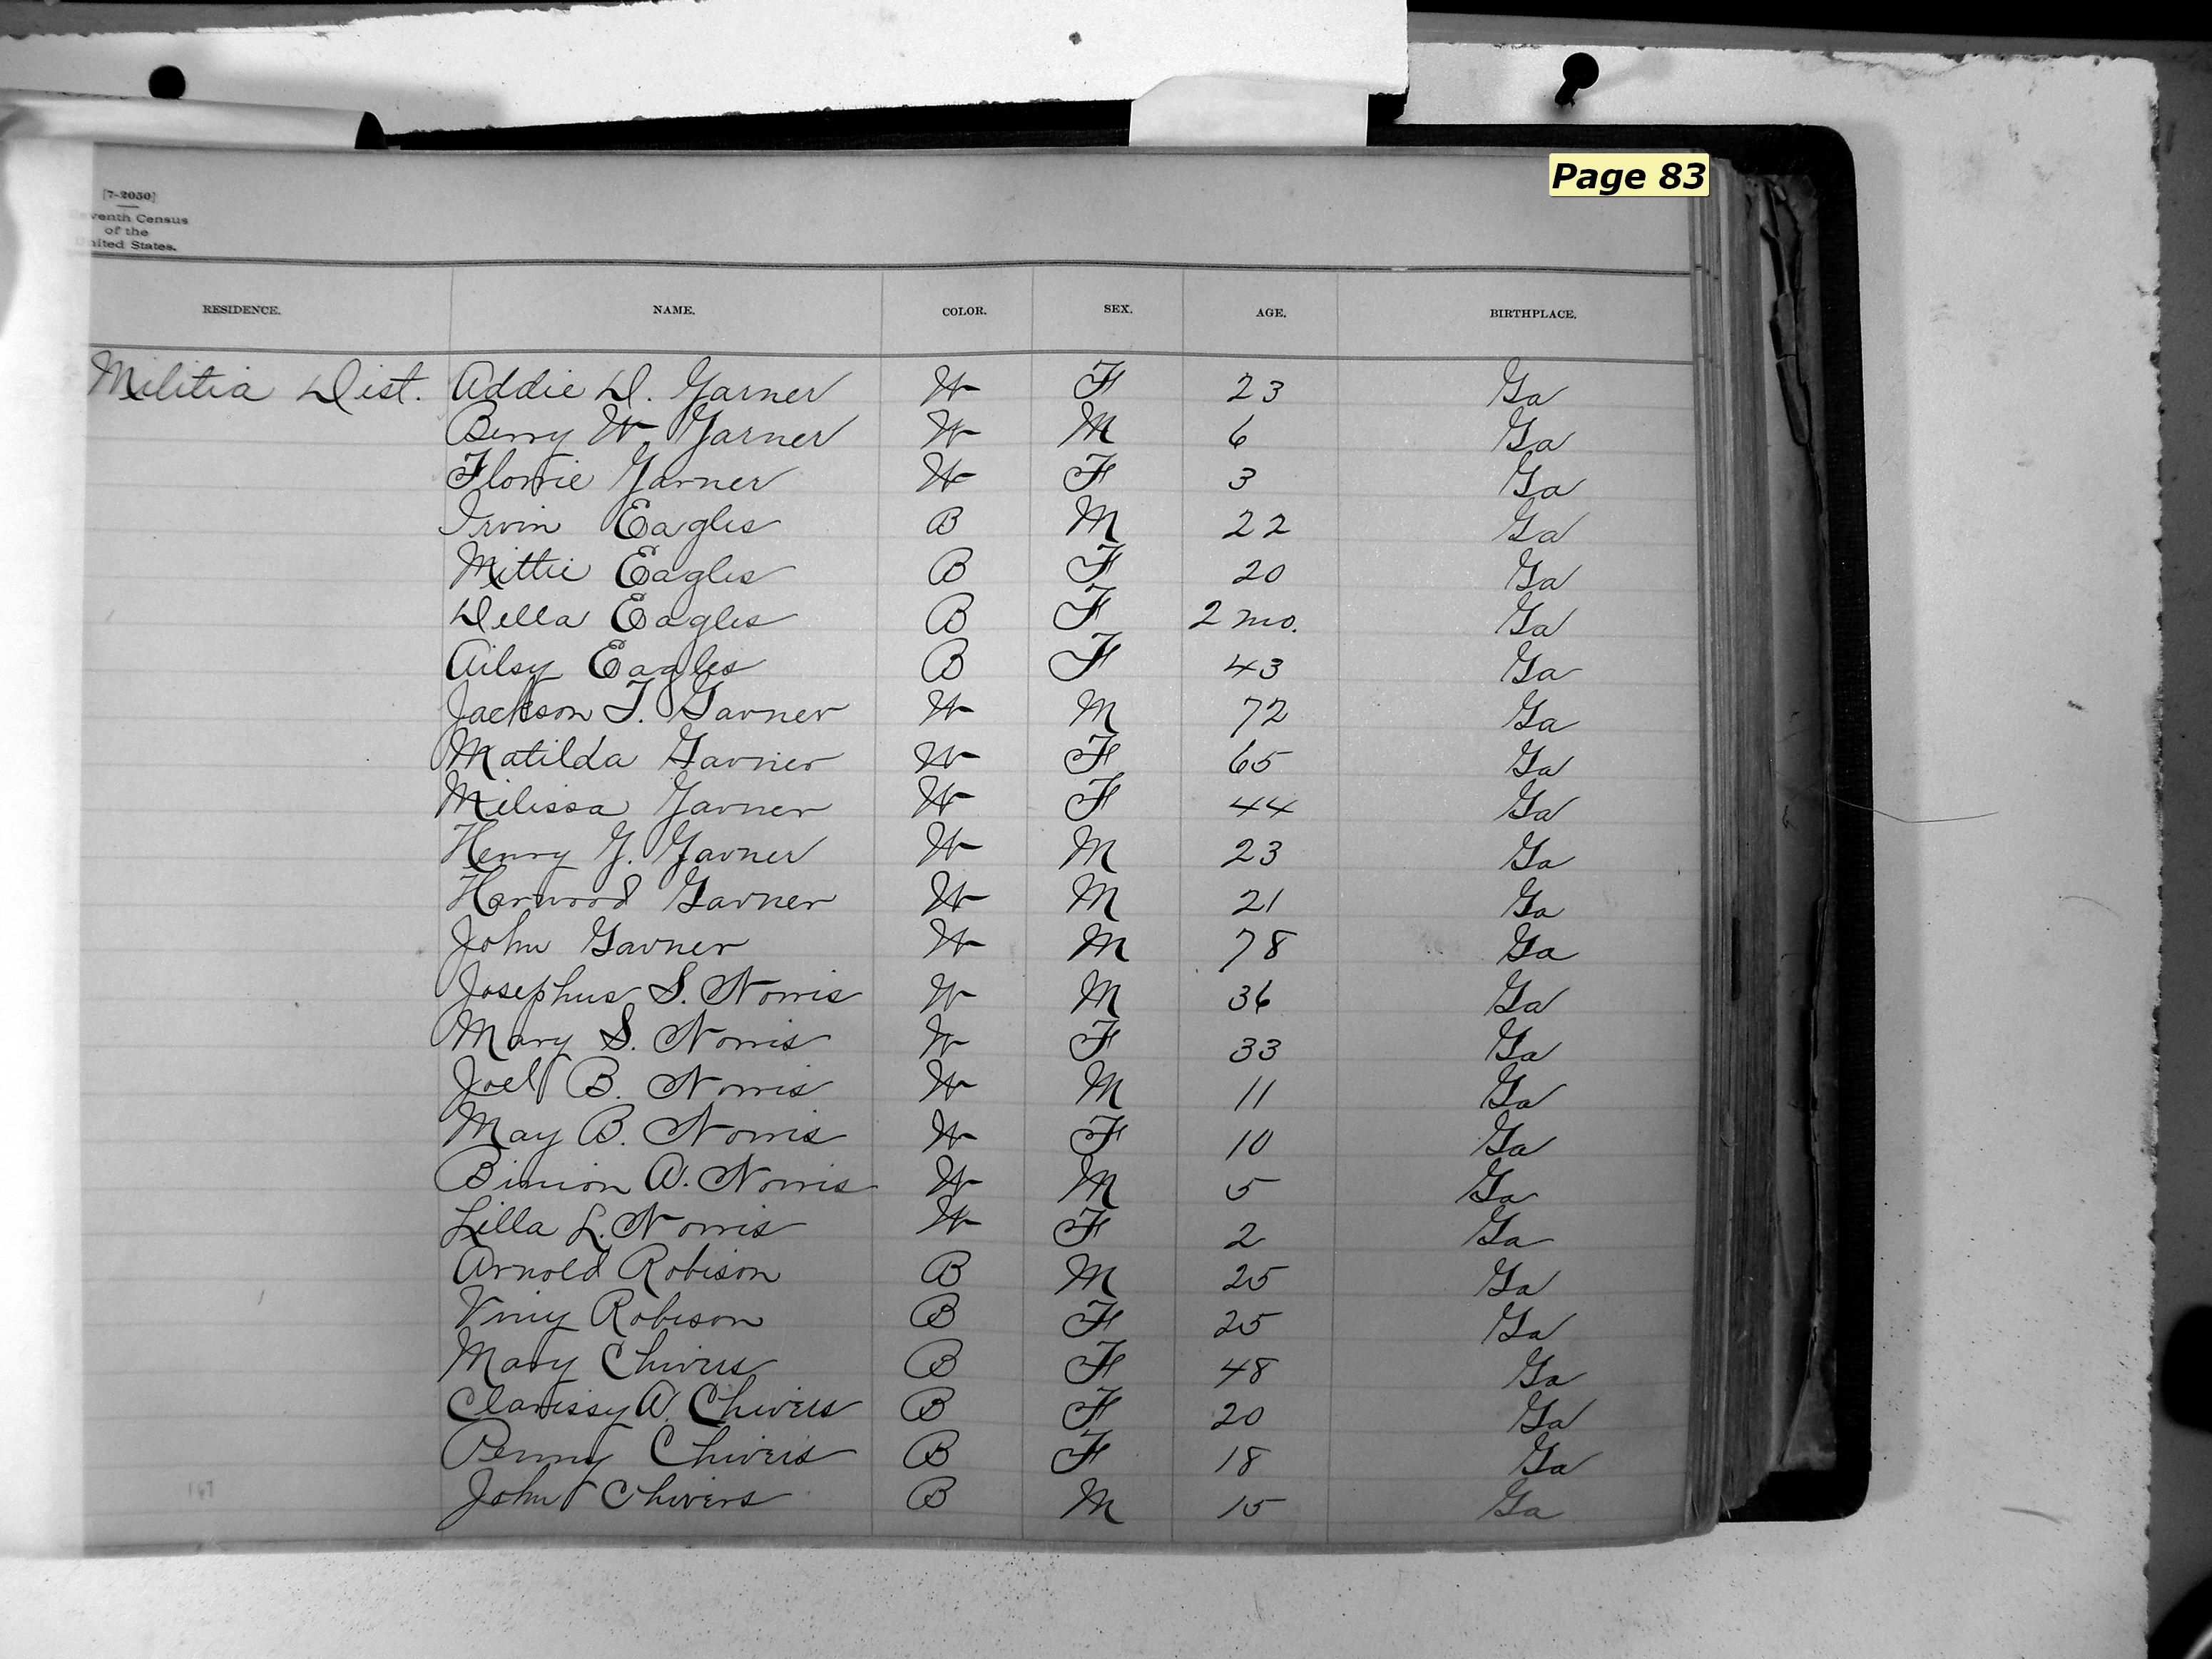 Page 83
[7-2050]
eventh Census
of the
United States.
RESIDENCE. NAME. COLOR. SEX. AGE. BIRTHPLACE.
Militia Dist. Addie D. Garner W F 23 Ga
Berry W. Garner W M 6 Ga
Florrie Garner W F 3 Ga
Irvin Eagles B M 22 Ga
Mittie Eagles B F 20 Ga
Della Eagles B F 2 mo. Ga
Ailsy Eagles B F 43 Ga
Jackson T. Garner W M 72 Ga
Matilda Garner W F 65 Ga
Melissa Garner W F 44 Ga
Henry G. Garner W M 23 Ga
Harwood Garner W M 21 Ga
John Garner W M 78 Ga
Josephus S. Norris W M 36 Ga
Mary S. Norris W F 33 Ga
Joel B. Norris W M 11 Ga
May B. Norris W F 10 Ga
Binion A. Norris W M 5 Ga
Lilla L. Norris W F 2 Ga
Arnold Robison B M 25 Ga
Viny Robison B F 25 Ga
Mary Chivers B F 48 Ga
Clarissy A. Chivers B F 20 Ga
Penny Chivers B F 18 Ga
John Chivers B M 15 Ga
167